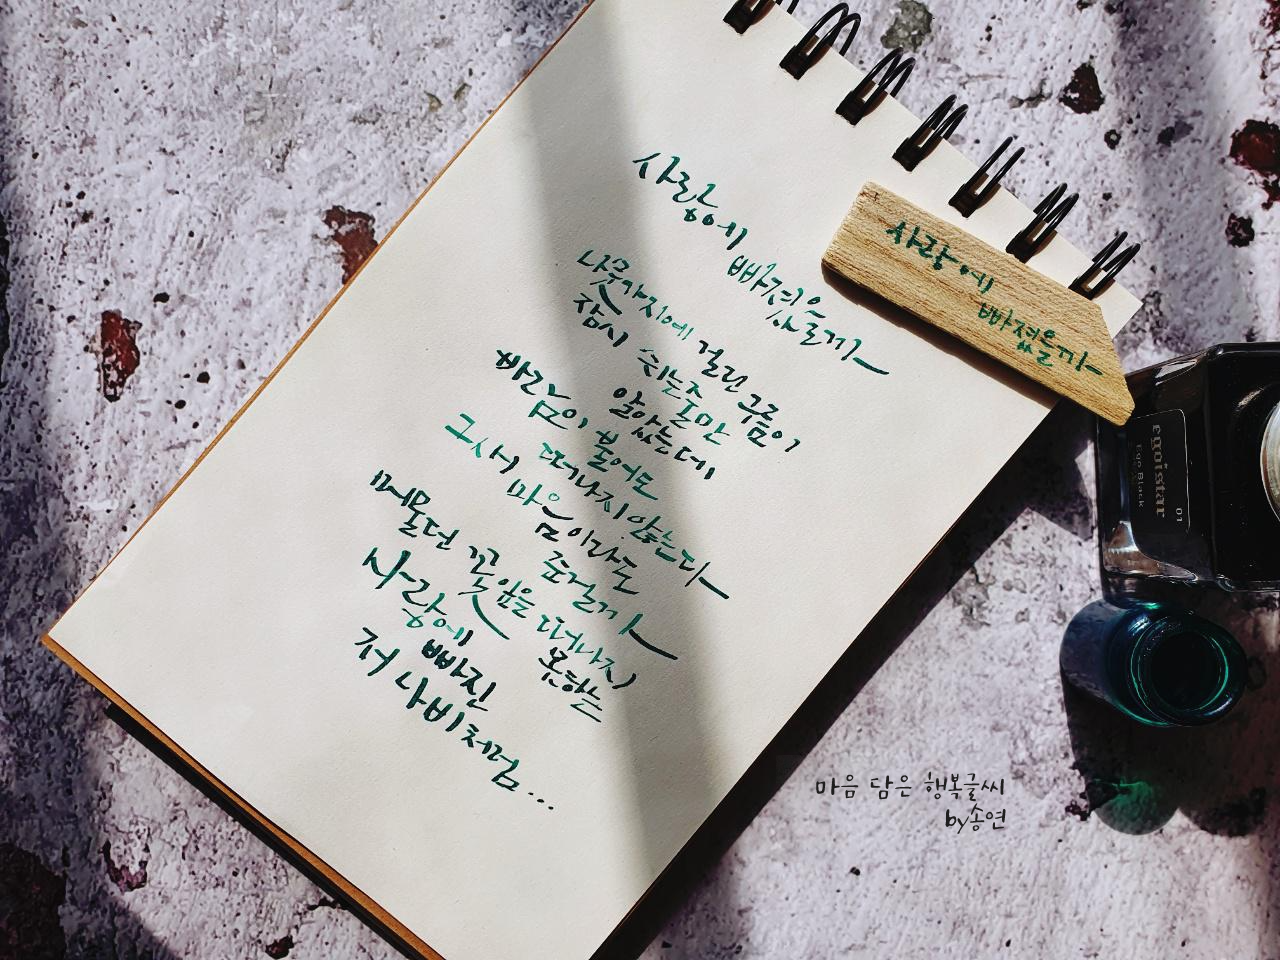 사랑에 빠졌을까
나뭇가지에 걸린 구름이
잠시 쉬는줄만
알았는데
바람이 불어도
떠나지 않는다
그새 마음이라도
준걸까
머물던 꽃잎을 떠나지
못하는
사랑에 빠진
저 나비처럼...
사랑에
빠졌을까
egoistar
Ego Black
01
마음 담은 행복글씨
by송연